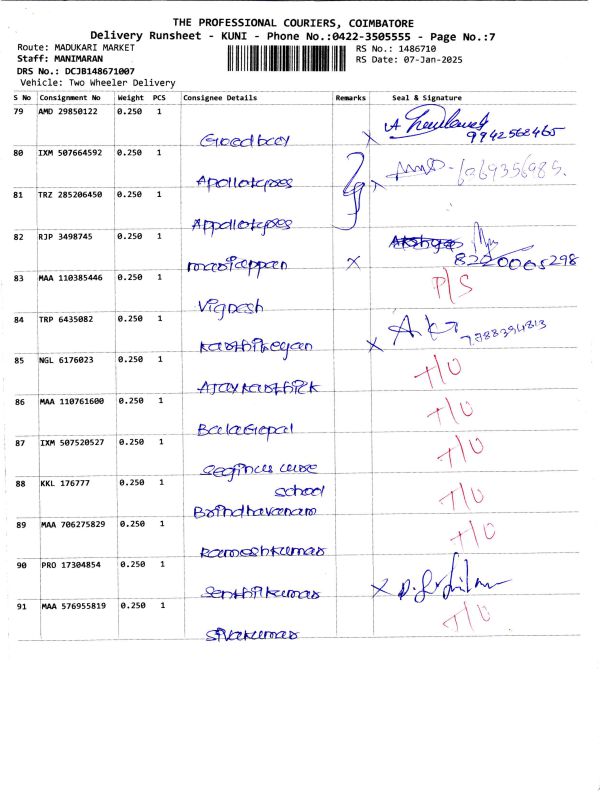 THE PROFESSIONAL COURIERS, COIMBATORE
Delivery Runsheet - KUNI - Phone No.:0422-3505555 - Page No.:7
Route: MADUKARI MARKET RS No.: 1486710
Staff: MANIMARAN RS Date: 07-Jan-2025
DRS No.: DCJB148671007
Vehicle: Two Wheeler Delivery
S No Consignment No Weight PCS Consignee Details Remarks Seal & Signature
79 AMD 29850122 0.250 1
Goodbooy 9942568465
80 IXM 507664592 0.250 1
Apollotyres
81 TRZ 285206450 0.250 1
Appollotyres
82 RJP 3498745 0.250 1
mariappan X 8220065298
83 MAA 110385446 0.250 1 P/S
Vignesh
84 TRP 6435082 0.250 1
karthikeyan X
85 NGL 6176023 0.250 1 T/O
Ajaykarthik
86 MAA 110761600 0.250 1 T/O
BalaGopal
87 IXM 507520527 0.250 1 T/O
school
88 KKL 176777 0.250 1 T/O
Brindhavanam
89 MAA 706275829 0.250 1 T/O
Rameshkumar
90 PRO 17304854 0.250 1 X
Senthilkumar
91 MAA 576955819 0.250 1 T/O
Sivakumar